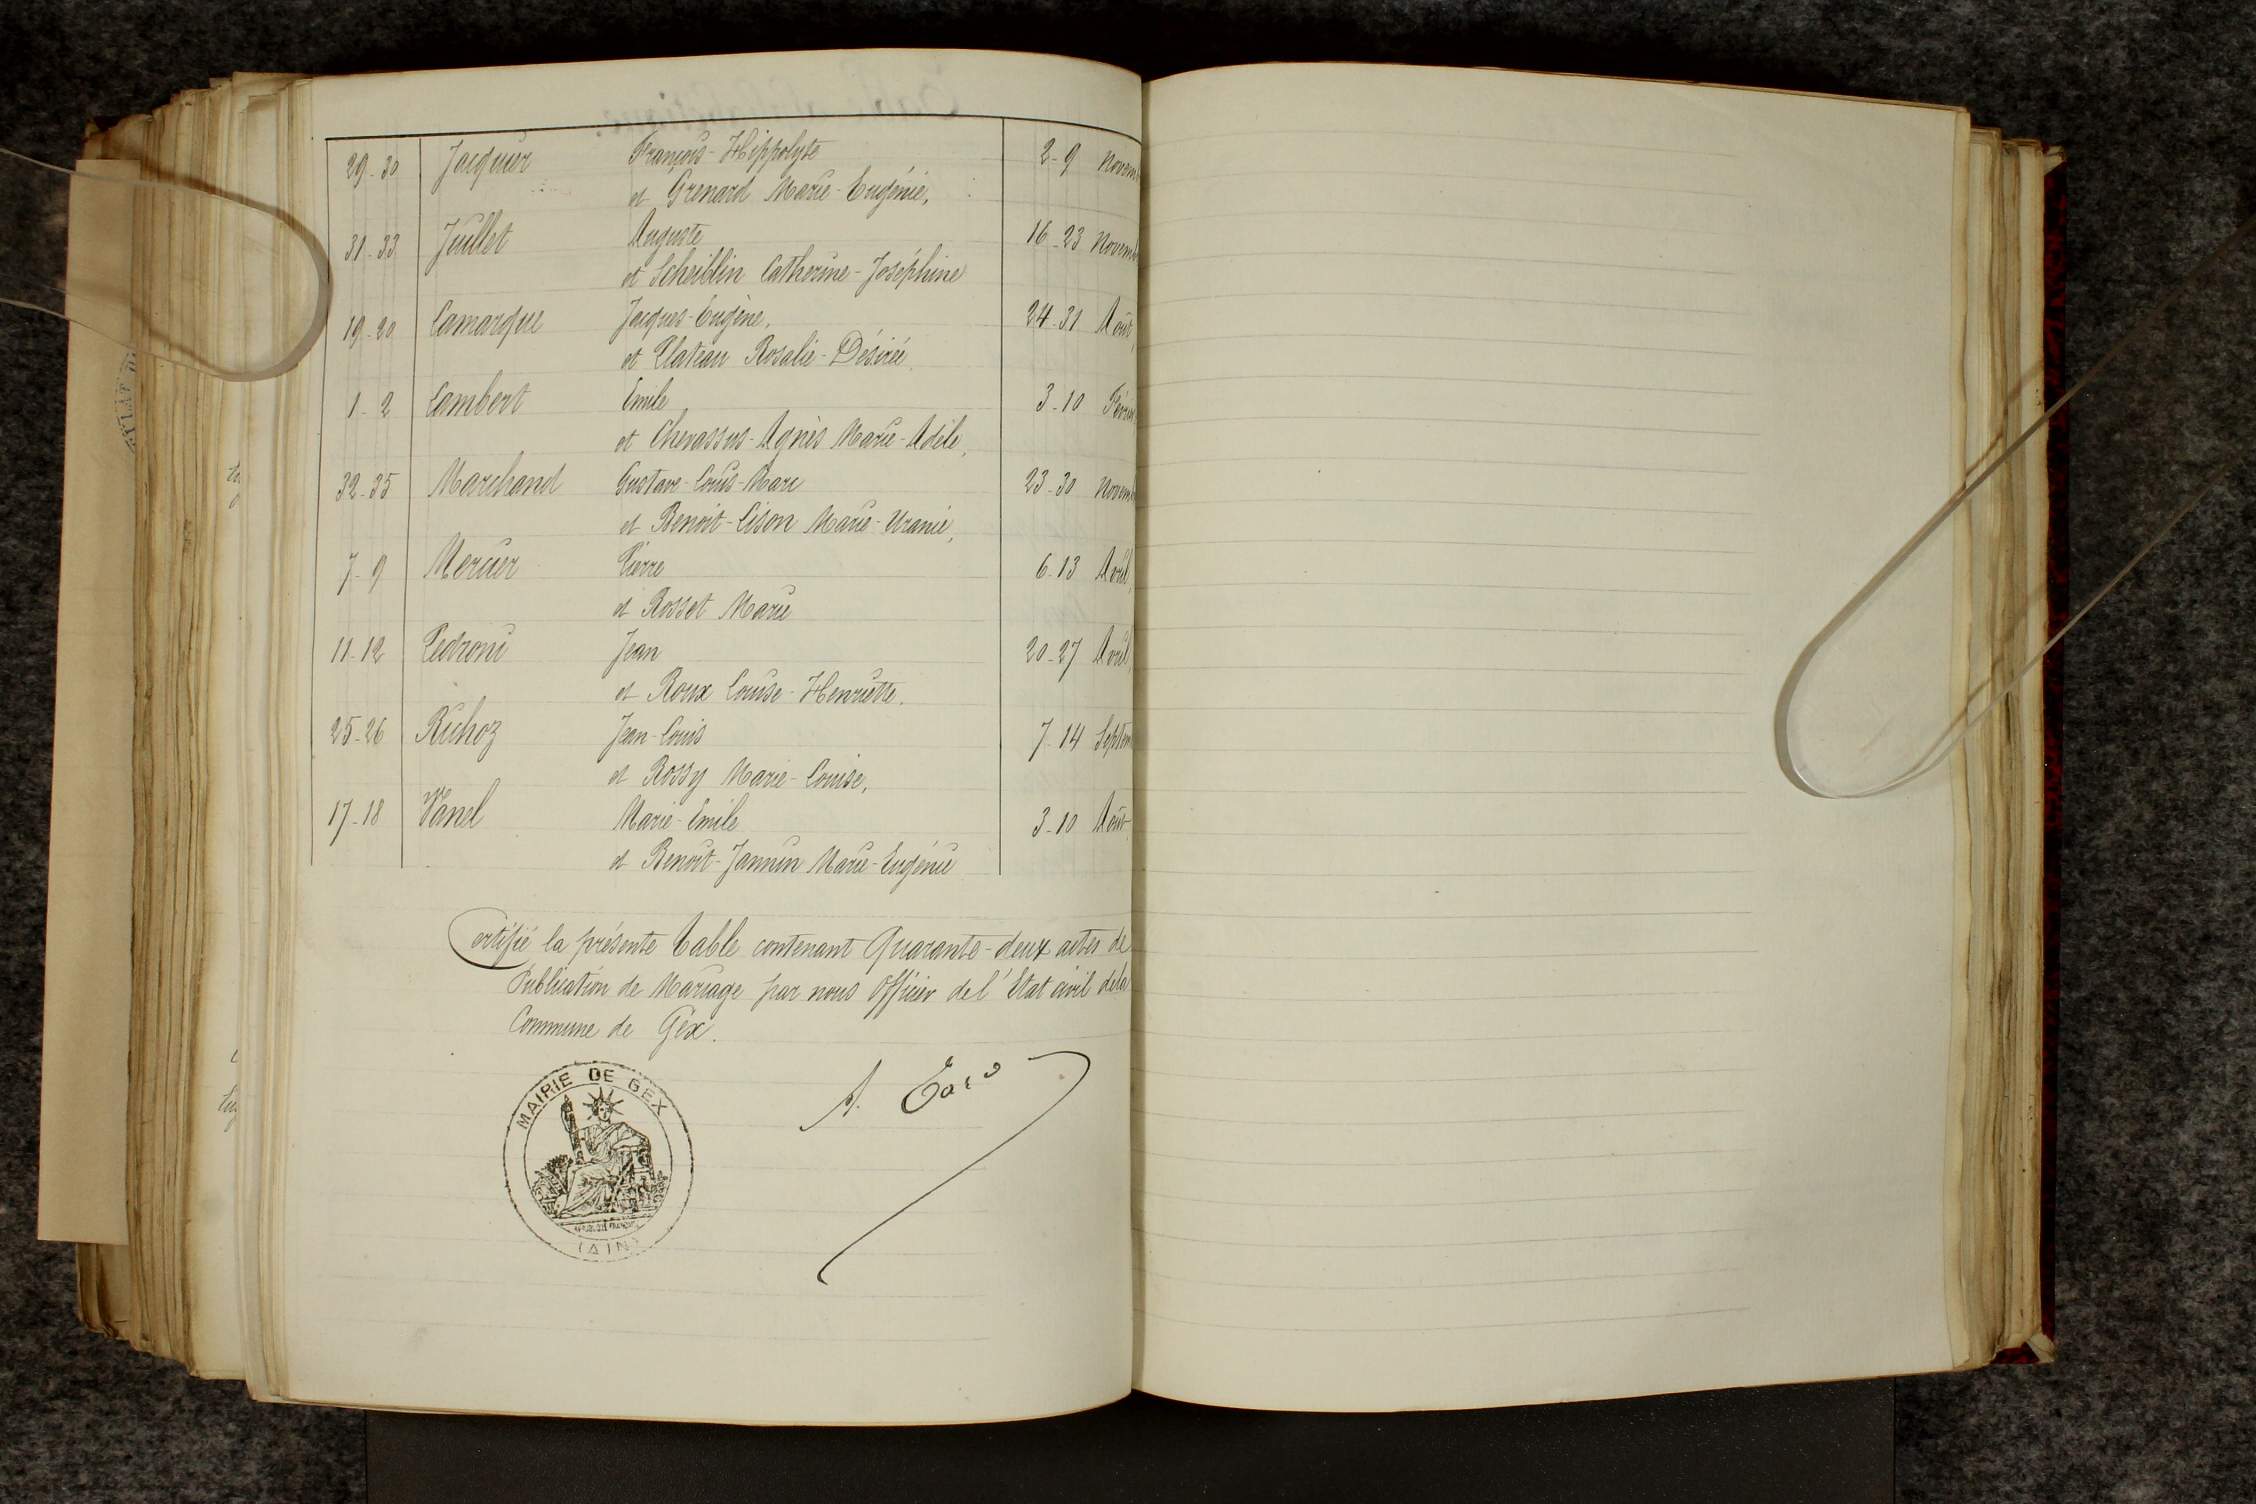 29-30 Jacquier François-Hippolyte 2-9 Novem
et Grenard Marie-Eugénie,
31-33 Juillet Auguste 16-23 Novem
et Scheiblin Catherine-Joséphine
19-20 Lamarque Jacques-Eugène, 24-31 Août,
et Plateau Rosalie-Désirée
1-2 Lambert Emile 3-10 Févrie
et Chenassus-Agnès Marie-Adèle,
32-35 Marchand Gustave-Louis-Marc 23-30 Novem
et Benoit-Lison Marie-Uranie,
7-9 Mercier Pierre 6-13 Avril,
et Rosset Marie
11-12 Pedroni Jean 20-27 Avril,
et Roux Louise-Henriette.
25-26 Richoz Jean-Louis 7-14 Septem
et Rossy Marie-Louise,
17-18 Vanel Marie-Emile 3-10 Août
et Benoit-Jannin Marie-Eugénie
Certifié la présente Table contenant Quarante-deux actes de
Publication de Mariage par nous Officier de l'Etat civil de la
Commune de Gex.
MAIRIE DE GEX
(AIN)